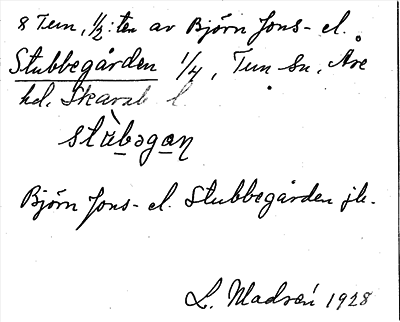 8 Tun, 1/2:ten av Björn Jons- el.
Stubbegården 1/4, Tun sn, Åse
hd, Skarab l
stùbəgan
Björn Jons- el. Stubbegården jb.
L. Madsén 1928